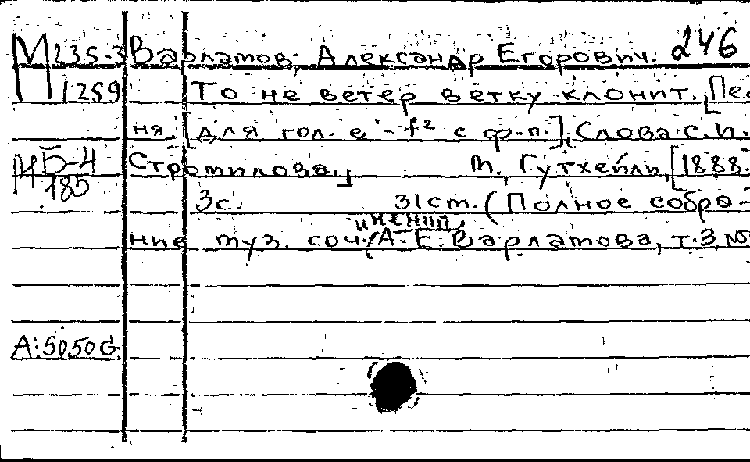 М 235-3 Варламов, Александр Егорович. 246
1259 То не ветер ветку клонит. [Пес-
ня. [Для гол. e'-f² с ф-п.], Слова С. И.
М Б-4 Стромилова.] М., Гутхейль, [1888.
185
3с. 31 ст. (Полное собра-
ние муз. сочинений А. Е. Варламова, т. 3, №
А: 5050 G.